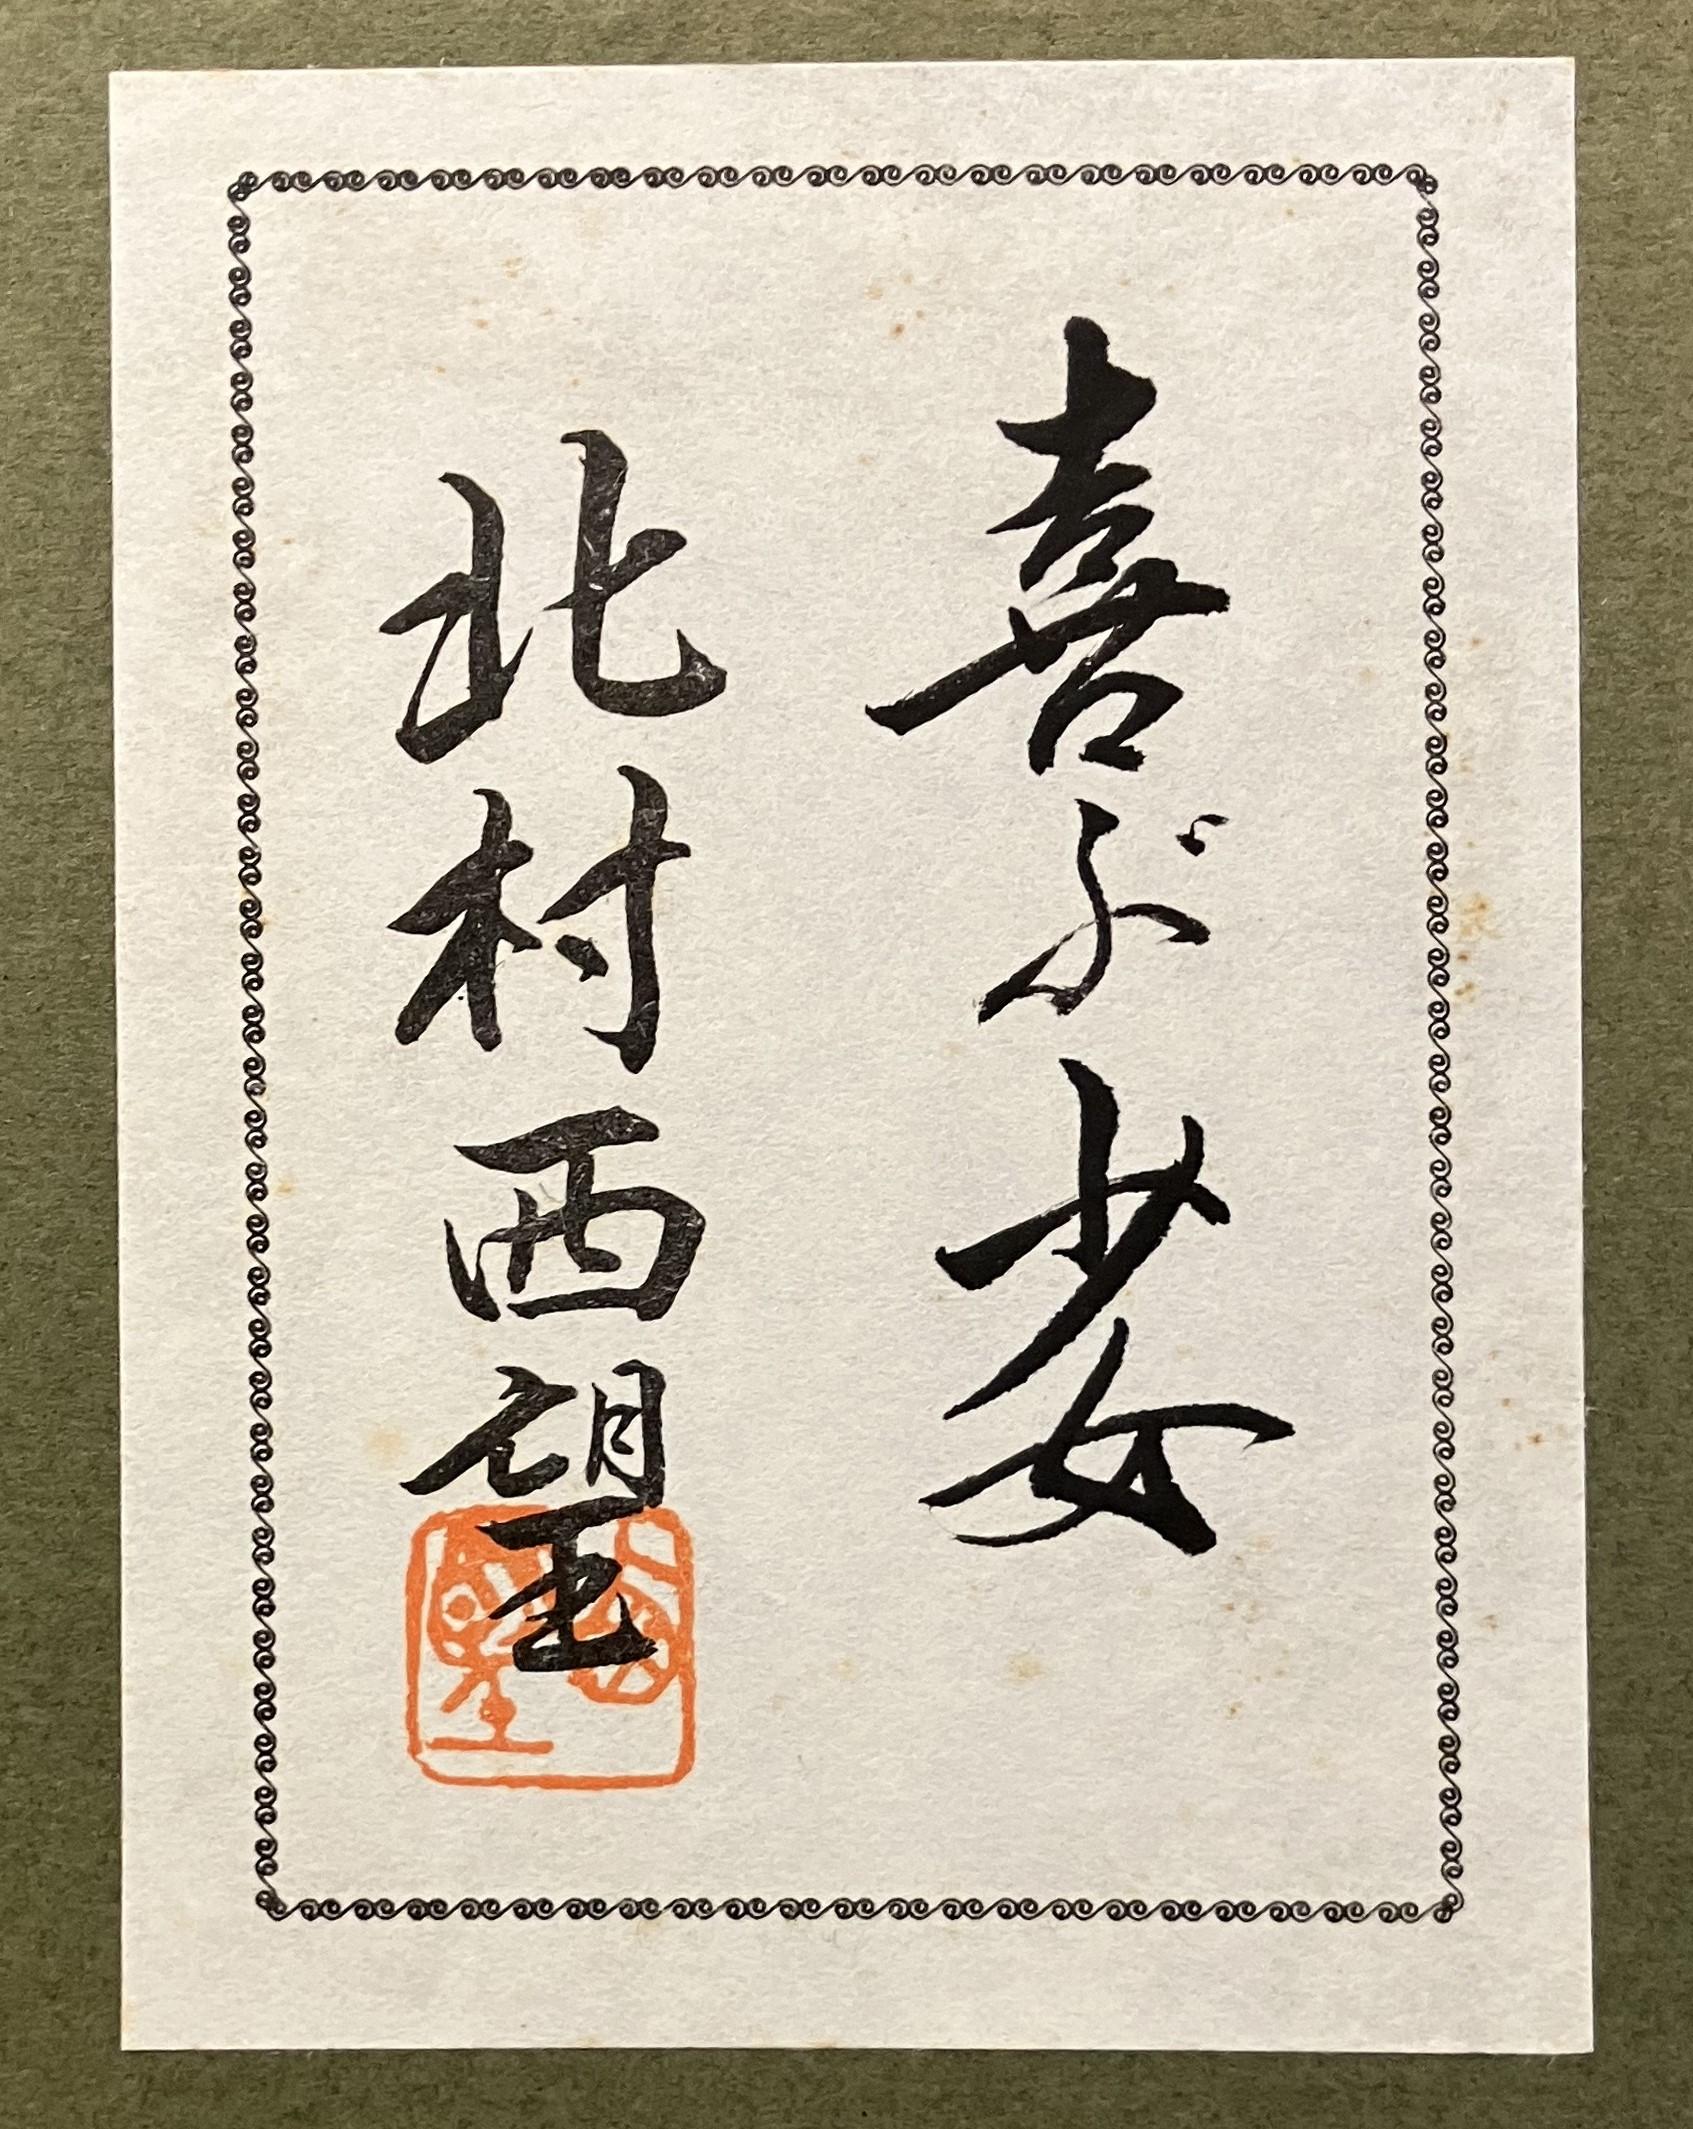 喜ぶ少女
北村西望
西望